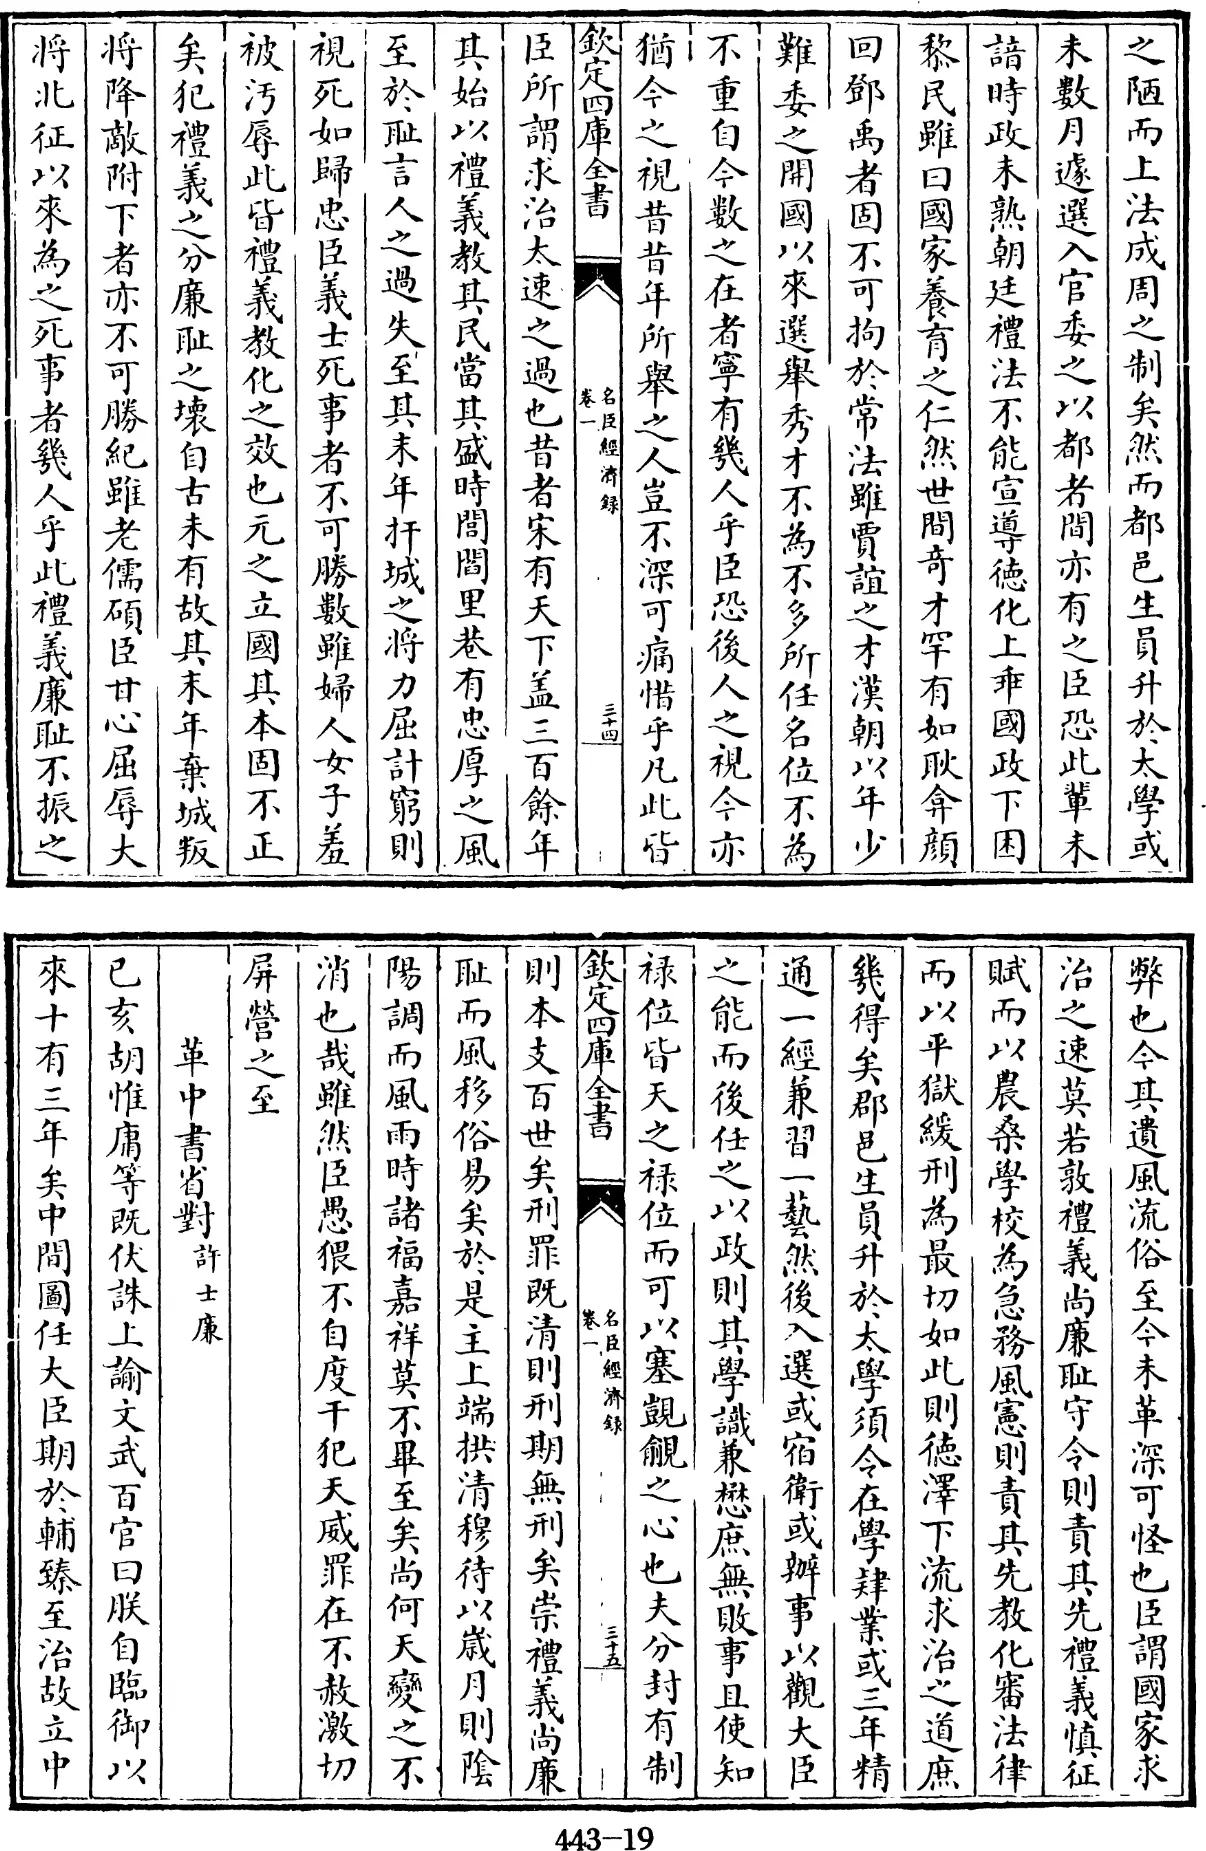 之陋而上法成周之制矣然而都邑生員升於太學或
未數月遽選入官委之以都者間亦有之臣恐此輩未
諳時政未熟朝廷禮法不能宣導徳化上乖國政下困
黎民雖曰國家養育之仁然世間奇才罕有如耿弇顔
回鄧禹者固不可拘於常法雖賈誼之才漢朝以年少
難委之開國以來選舉秀才不為不多所任名位不為
不重自今數之在者寧有幾人乎臣恐後人之視今亦
猶今之視昔昔年所舉之人豈不深可痛惜乎凡此皆
欽定四庫全書
名臣經濟録
卷一
三十四
臣所謂求治太速之過也昔者宋有天下盖三百餘年
其始以禮義教其民當其盛時閭閻里巷有忠厚之風
至於恥言人之過失至其末年扞城之將力屈計窮則
視死如歸忠臣義士死事者不可勝數雖婦人女子羞
被汚辱此皆禮義教化之效也元之立國其本固不正
矣犯禮義之分廉恥之壊自古未有故其末年棄城叛
將降敵附下者亦不可勝紀雖老儒碩臣甘心屈辱大
將北征以來為之死事者幾人乎此禮義廉恥不振之
弊也今其遺風流俗至今未革深可怪也臣謂國家求
治之速莫若敦禮義尚廉恥守令則責其先禮義慎征
賦而以農桑學校為急務風憲則責其先教化審法律
而以平獄緩刑為最切如此則徳澤下流求治之道庶
幾得矣郡邑生員升於太學須令在學肄業或三年精
通一經兼習一藝然後入選或宿衛或辦事以觀大臣
之能而後任之以政則其學識兼懋庶無敗事且使知
禄位皆天之禄位而可以塞覬覦之心也夫分封有制
欽定四庫全書
名臣經濟録
卷一
三十五
則本支百世矣刑罪既清則刑期無刑矣崇禮義尚廉
恥而風移俗易矣於是主上端拱清穆待以歲月則陰
陽調而風雨時諸福嘉祥莫不畢至矣尚何天變之不
消也哉雖然臣愚猥不自度干犯天威罪在不赦激切
屏營之至
革中書省對 許士廉
已亥胡惟庸等既伏誅上諭文武百官曰朕自臨御以
來十有三年矣中間圖任大臣期於輔臻至治故立中
443-19